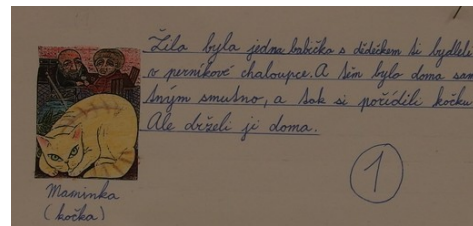 Žila byla jedna babička s dědečkem ti bydleli
v perníkové chaloupce. A těm bylo doma sam
tným smutno, a tak si pořídili kočku
Ale drželi ji doma.
1
Maminka
(kočka)